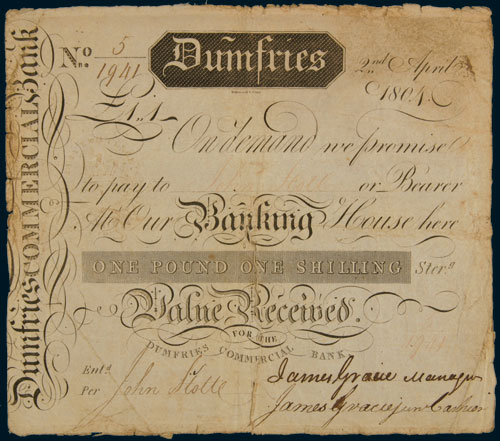 Dumfries COMMERCIAL Bank
No. 5/1941
Dumfries
2nd April
1804.
£1„1
On demand we promise
to pay to
or Bearer
At Our Banking House here
ONE POUND ONE SHILLING Sterg
Value Received.
FOR THE
DUMFRIES COMMERCIAL BANK
Entd
Per
James Gracie Manager
James Gracie junr Cashier